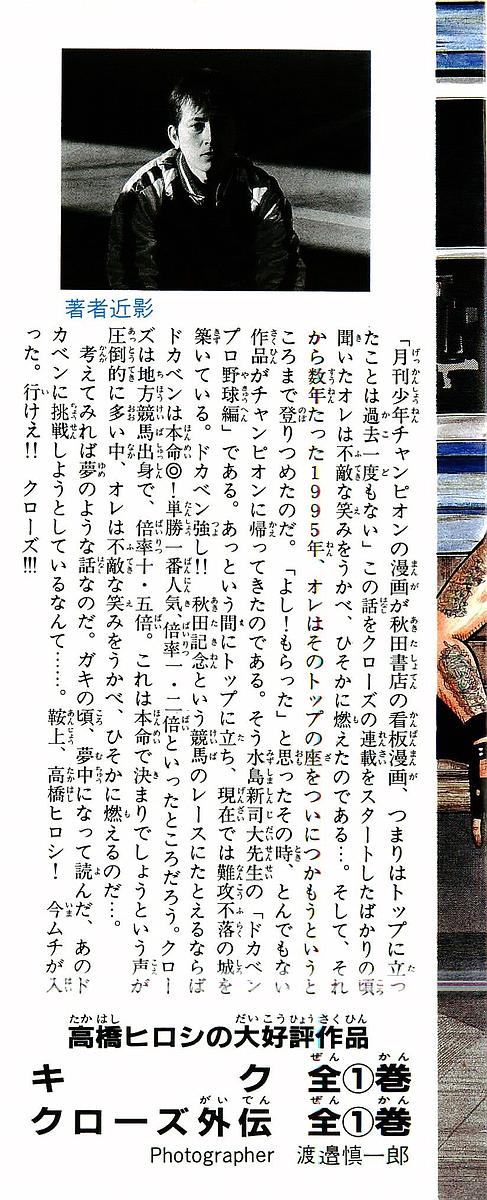 著者近影
「月刊少年チャンピオンの漫画が秋田書店の看板漫画、つまりはトップに立つ
たことは過去一度もない」この話をクローズの連載をスタートしたばかりの頃
聞いたオレは不敵な笑みをうかべ、ひそかに燃えたのである…。そして、それ
から数年たった1995年、オレはそのトップの座をついにつかもうというと
ころまで登りつめたのだ。「よし!もらった」と思ったその時、とんでもない
作品がチャンピオンに帰ってきたのである。そう水島新司大先生の「ドカベン
プロ野球編」である。あっという間にトップに立ち、現在では難攻不落の城を
築いている。ドカベン強し!!　秋田記念という競馬のレースにたとえるならば
ドカベンは本命◎!単勝一番人気、倍率一・二倍といったところだろう。クロー
ズは地方競馬出身で、倍率十・五倍。これは本命で決まりでしょうという声が
圧倒的に多い中、オレは不敵な笑みをうかべ、ひそかに燃えるのだ…。
考えてみれば夢のような話なのだ。ガキの頃、夢中になって読んだ、あのド
カベンに挑戦しようとしているなんて……。鞍上、高橋ヒロシ!　今ムチが入
った。行けえ!!　クローズ!!!
高橋ヒロシの大好評作品
キク　全①巻
クローズ外伝　全①巻
Photographer　渡邉慎一郎